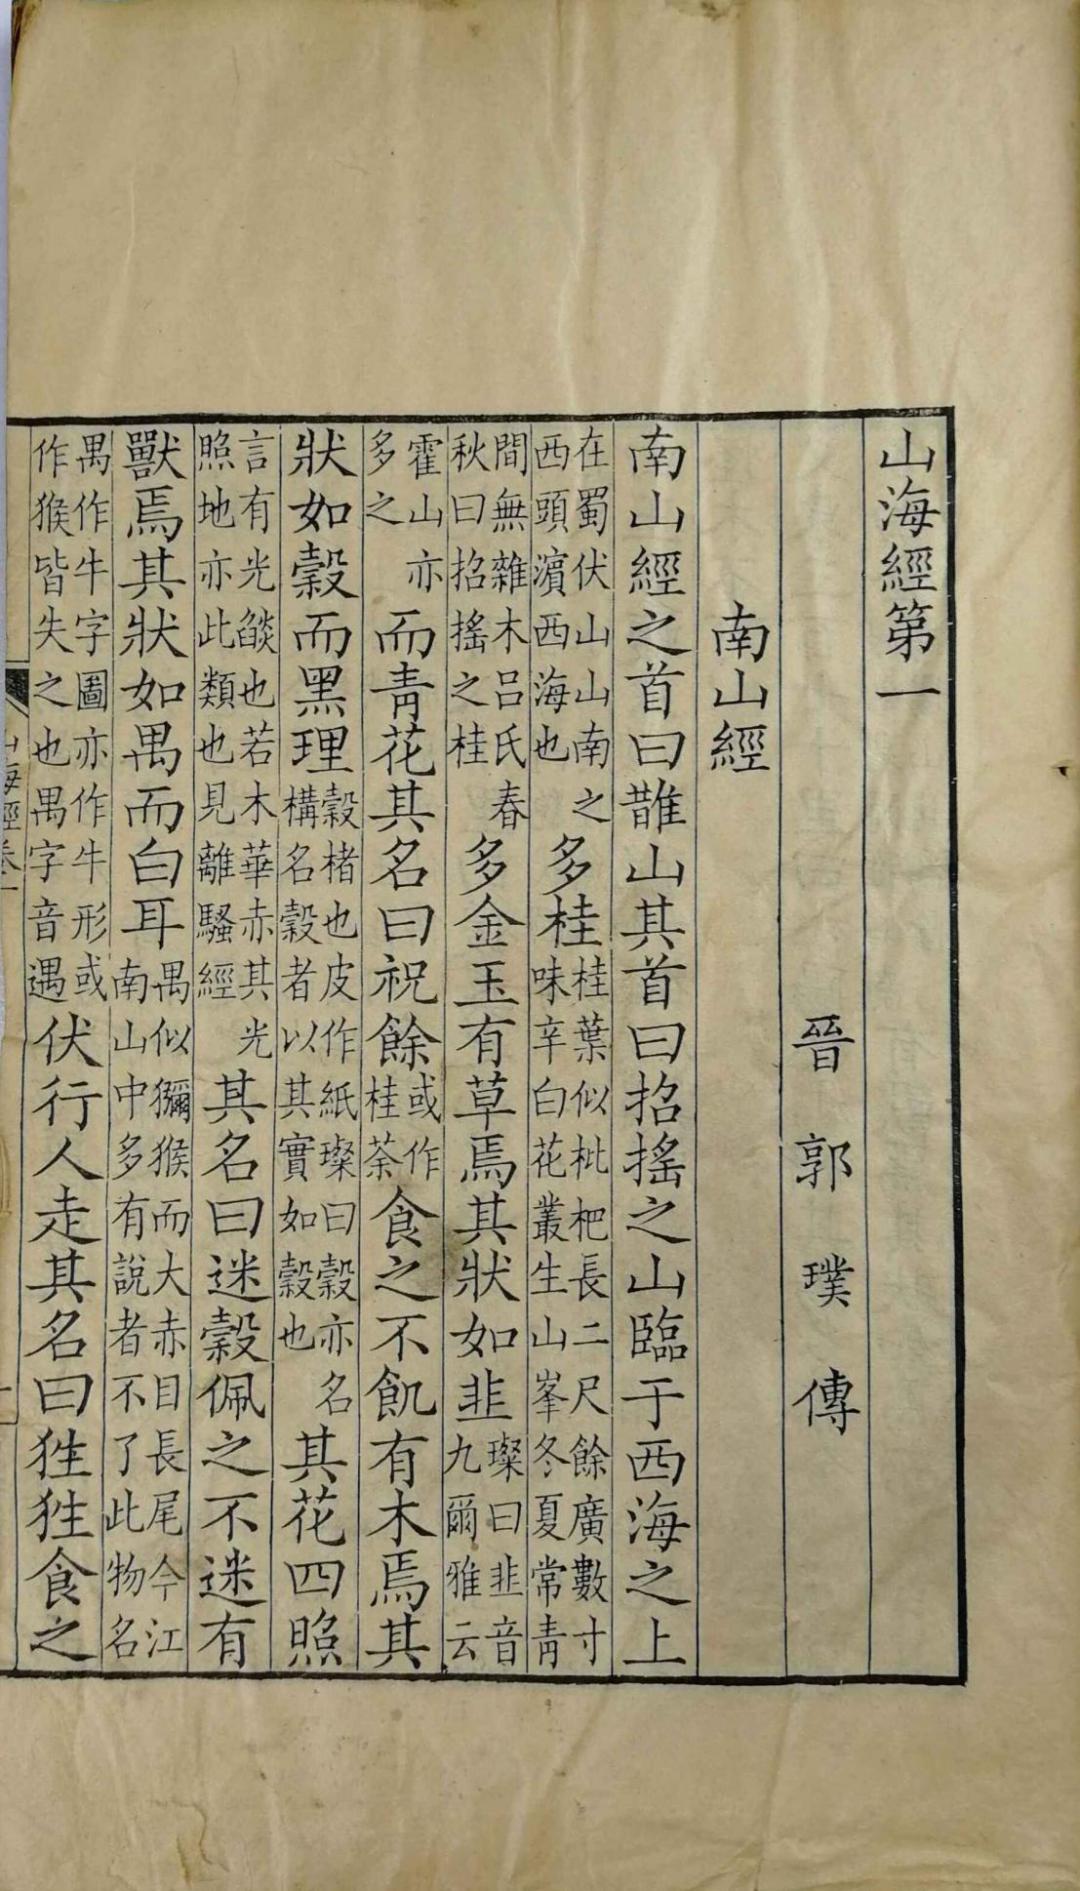 山海經第一
晉郭璞傳
南山經
南山經之首曰䧿山其首曰招搖之山臨于西海之上
在蜀伏山山南之西頭濵西海也多桂桂葉似枇杷長二尺餘廣數寸味辛白花叢生山峯冬夏常青
間無雜木吕氏春秋曰招搖之桂多金玉有草焉其狀如韭璨曰韭音九爾雅云
霍山亦多之而青花其名曰祝餘或作桂荼食之不飢有木焉其
狀如榖而黑理榖楮也皮作紙璨曰榖亦名構名榖者以其實如榖也其花四照
言有光燄也若木華赤其光照地亦此類也見離騷經其名曰迷榖佩之不迷有
獸焉其狀如禺而白耳禺似獼猴而大赤目長尾今江南山中多有說者不了此物名
禺作牛字圖亦作牛形或作猴皆失之也禺字音遇伏行人走其名曰狌狌食之